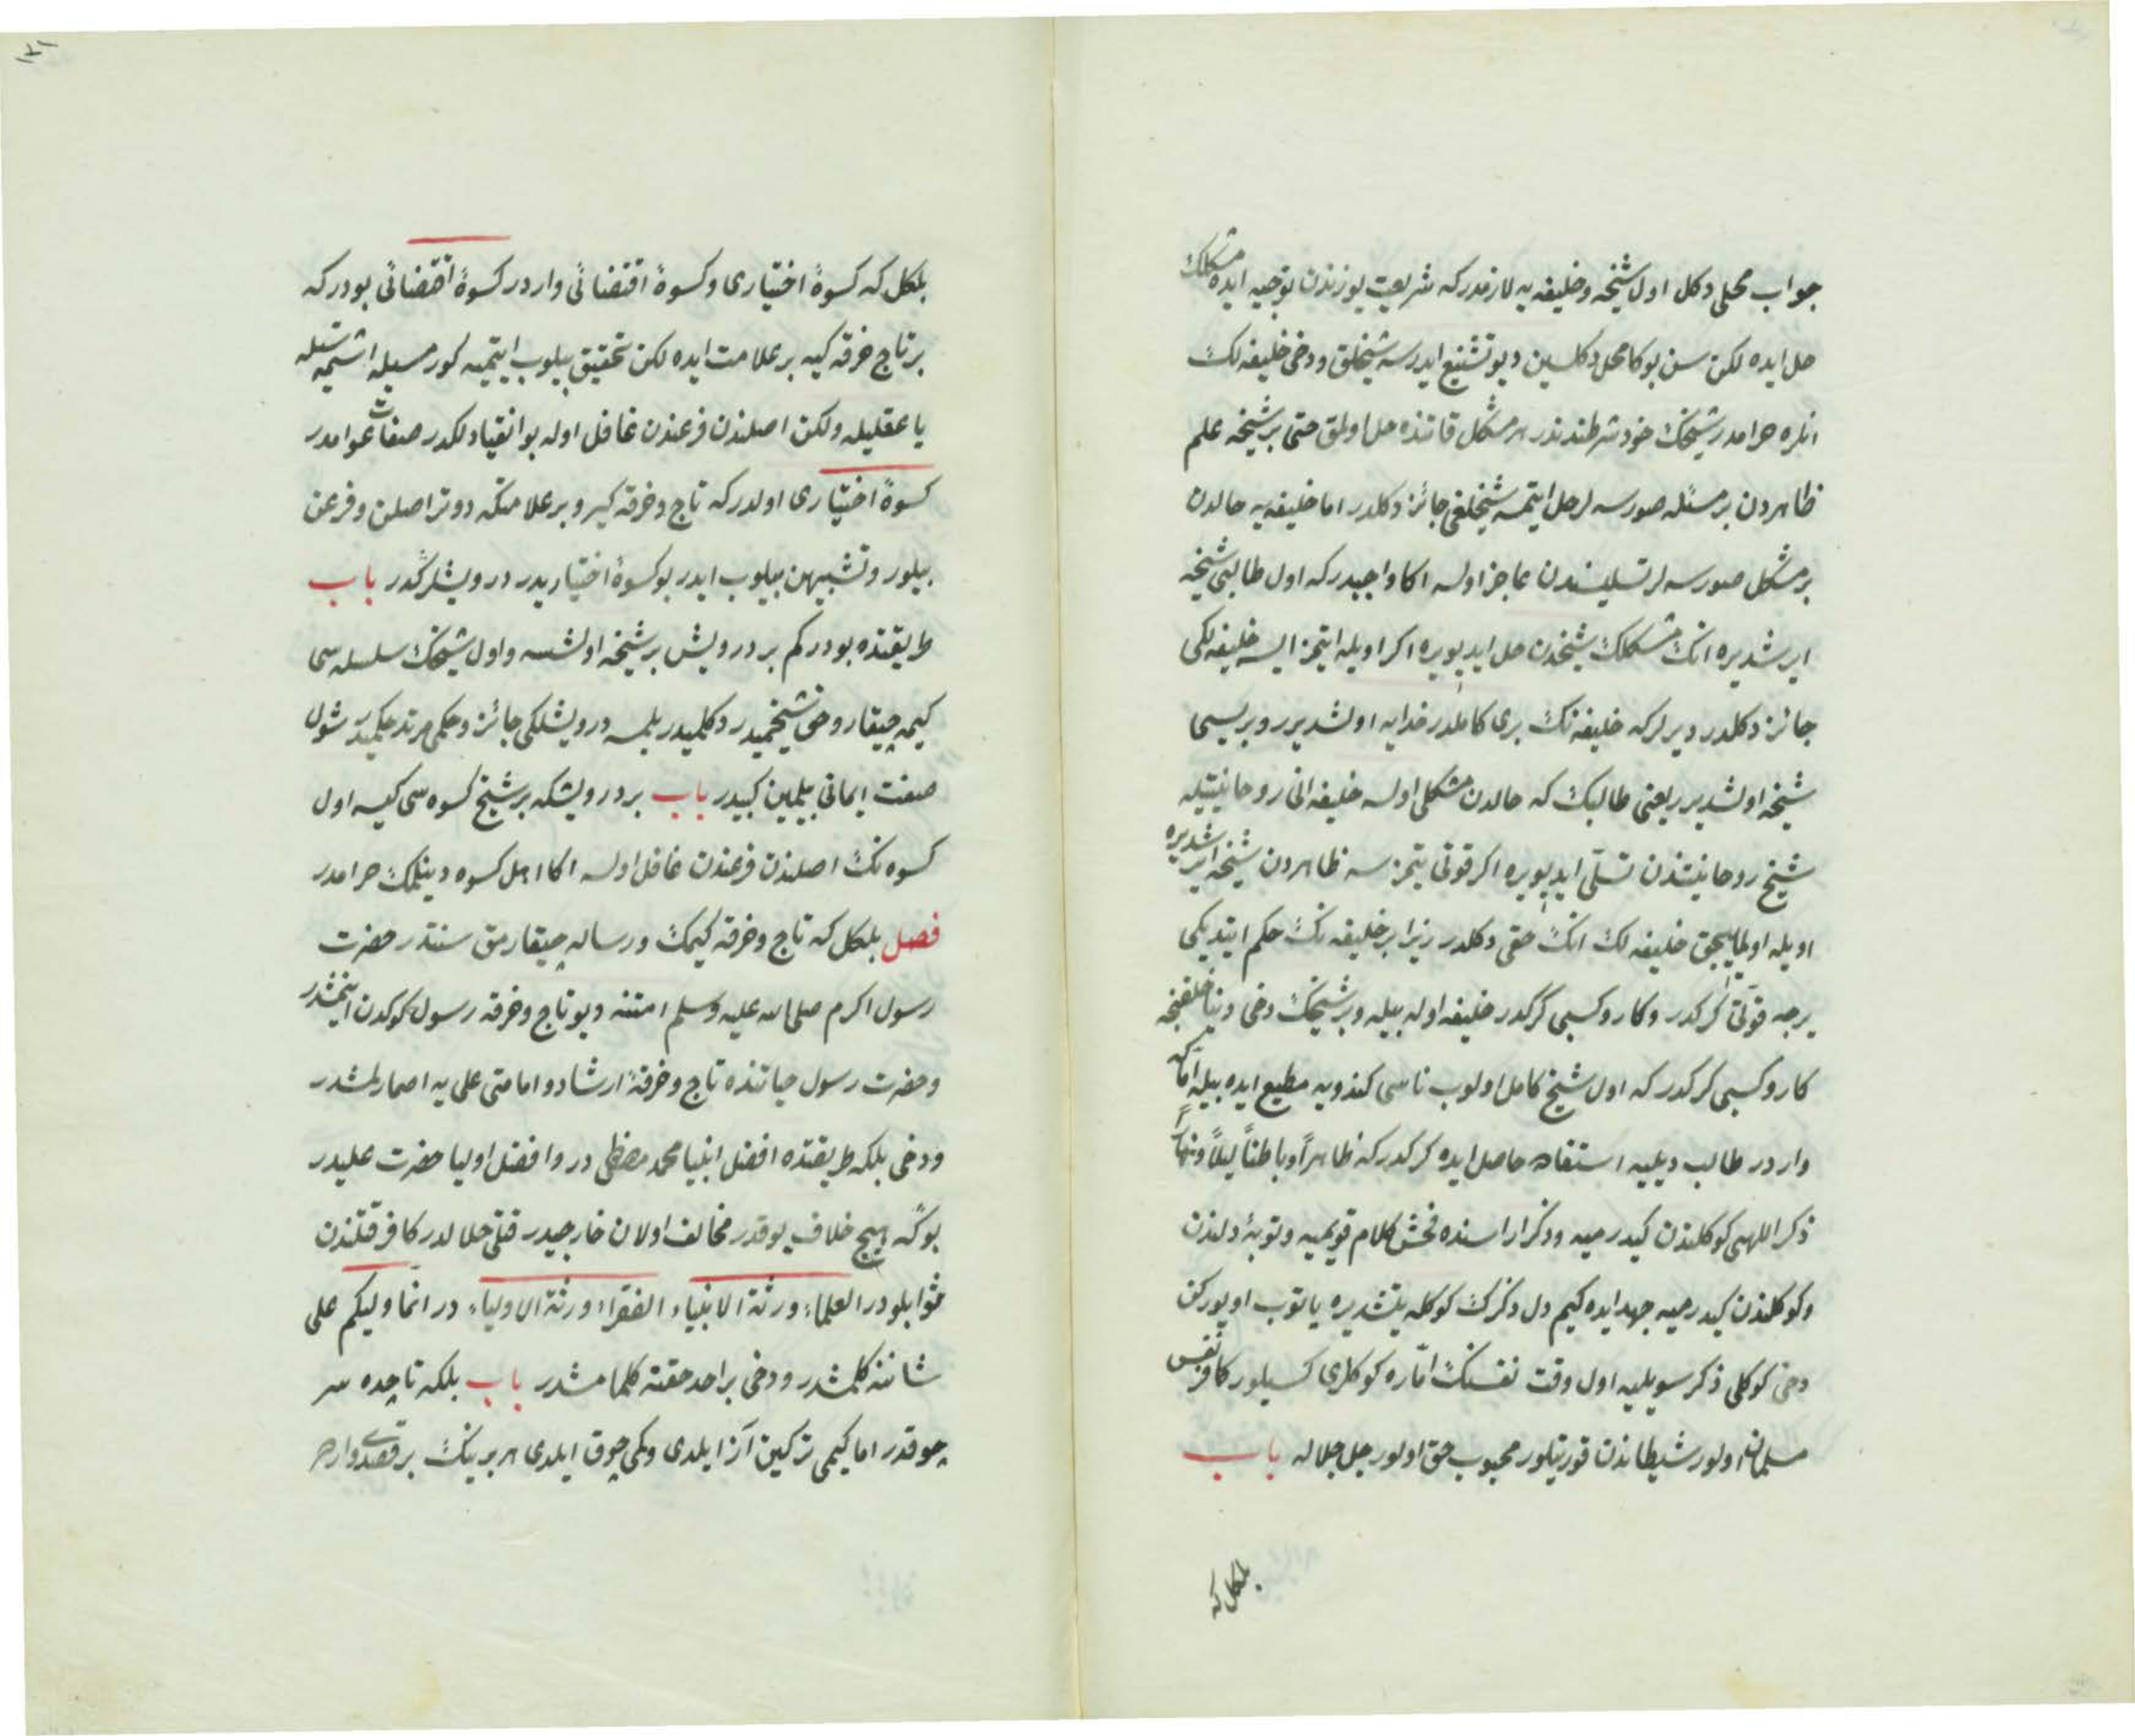 جواب محلی دکل اول شیخه و خلیفه یه لازمدر که شریعت یوزندن توجیه ایده مشکلک
حل ایده لکن سن بوکا محل دکلسین دیو تشنیع ایدرسه شیخلق و دخی خلیفه لک
انلره حرامدر شیخک خود شرطندندر هر مشکل قاتنده حل اولمق حتی بر شیخه علم
ظاهردن بر مسئله صورسه لر حل ایتمسه شیخلغی جائز دکلدر اما خلیفه یه حالدن
بر مشکل صورسه لر تسلیسندن عاجز اولسه اکا واجبدر که اول طالبی شیخه
ایرشدیره انک مشکلک شیخدن حل ایدیویره اکر اویله ایتمز ایسه خلیفه لکی
جائز دکلدر دیرلر که خلیفه نک بری کاملدر خدایه اولشدیرر و بریسی
شیخه اولشدیرر یعنی طالبک که حالدن مشکلی اولسه خلیفه انی روحانیتیله
شیخ روحانیتندن تسلّی ایدیویره اکر قوتی یتمزسه ظاهردن شیخه ایرشدیره
اویله اولمایجق خلیفه لک انک حقی دکلدر زیرا بر خلیفه نک حکم ایتدیکی
یرجه قوّتی کرکدر و کار و کسبی کرکدر خلیفه اوله بیله و بر شیخک دخی
کار و کسبی کرکدر که اول شیخ کامل اولوب ناسی کندویه مطیع ایده بیله اما که
واردر طالب دیلیه استفاده حاصل ایده کرکدر که ظاهراً و باطناً لیلاً و نهاراً
ذکر اللهی کوکلندن کیدرمیه و ذکر اراسنده فحش کلام قویمیه و توبه‌ٔ دلندن
و کوکلندن کیدرمیه جهد ایده کیم دل ذکرک کوکله یتشدیره یاتوب اویورکن
دخی کوکلی ذکر سویلیه اول وقت نفسنک امّاره کوکلری کسیلور کافر نفس
مسلمان اولور شیطاندن قورتیلور محبوب حق اولور جل جلاله باب
بلکل که
١٢١
بلکل که کسوهٔ اختیاری و کسوهٔ اقتضائی واردر کسوهٔ اقتضائی بودر که
بر تاج خرقه کیه بر علامت ایده لکن تحقیق بیلوب ایتمیه کورمسیله اشتمسیله
یا عقلیله ولکن اصلندن فرعندن غافل اوله بو انقیادلکدر صفات عوامدر
کسوهٔ اختیاری اولدر که تاج و خرقه کیر و بر علامتکه دوتر اصلن و فرعن
بیلور و تشبیهن بیلوب ایدر بو کسوهٔ اختیاریدر درویشلرکدر باب
طریقتده بودر کم بر درویش بر شیخه اولشسه و اول شیخک سلسله سی
کیمه چیقار و دخی شیخمیدر دکلمیدر بلمسه درویشلکی جائز و حکمی مرتد حکمیدر شول
صفت ایمانی بیلمین کبیدر باب بر درویشکه بر شیخ کسوه سی کیسه اول
کسوه نک اصلندن فرعندن غافل اولسه اکا اهل کسوه دینلمک حرامدر
فصل بلکل که تاج و خرقه کیمک و رساله چیقارمق سنتدر حضرت
رسول اکرم صلی الله علیه وسلم امتنه دیو تاج و خرقه رسول کوکدن اینمشدر
و حضرت رسول حیاتنده تاج و خرقهٔ ارشاد و امامتی علی یه اصمارلمشدر
و دخی بلکه طریقتده افضل انبیا محمد مصطفی در و افضل اولیا حضرت علیدر
بوکه هیچ خلاف یوقدر مخالف اولان خارجیدر قتلی حلالدر کافر قتلندن
ثوابلودر العلماء ورثة الانبیاء الفقراء ورثة الاولیاء در انما ولیکم علی
شاننه کلمشدر و دخی بر احد حقنه کلمامشدر باب بلکه تاجده سر
چوقدر اما کیمی ترکین آز ایلدی و کمی چوق ایلدی هر برینک بر قصدی واردر